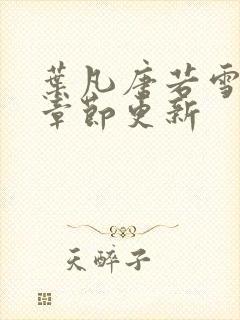 葉凡唐若雪
章節更新
天醉子